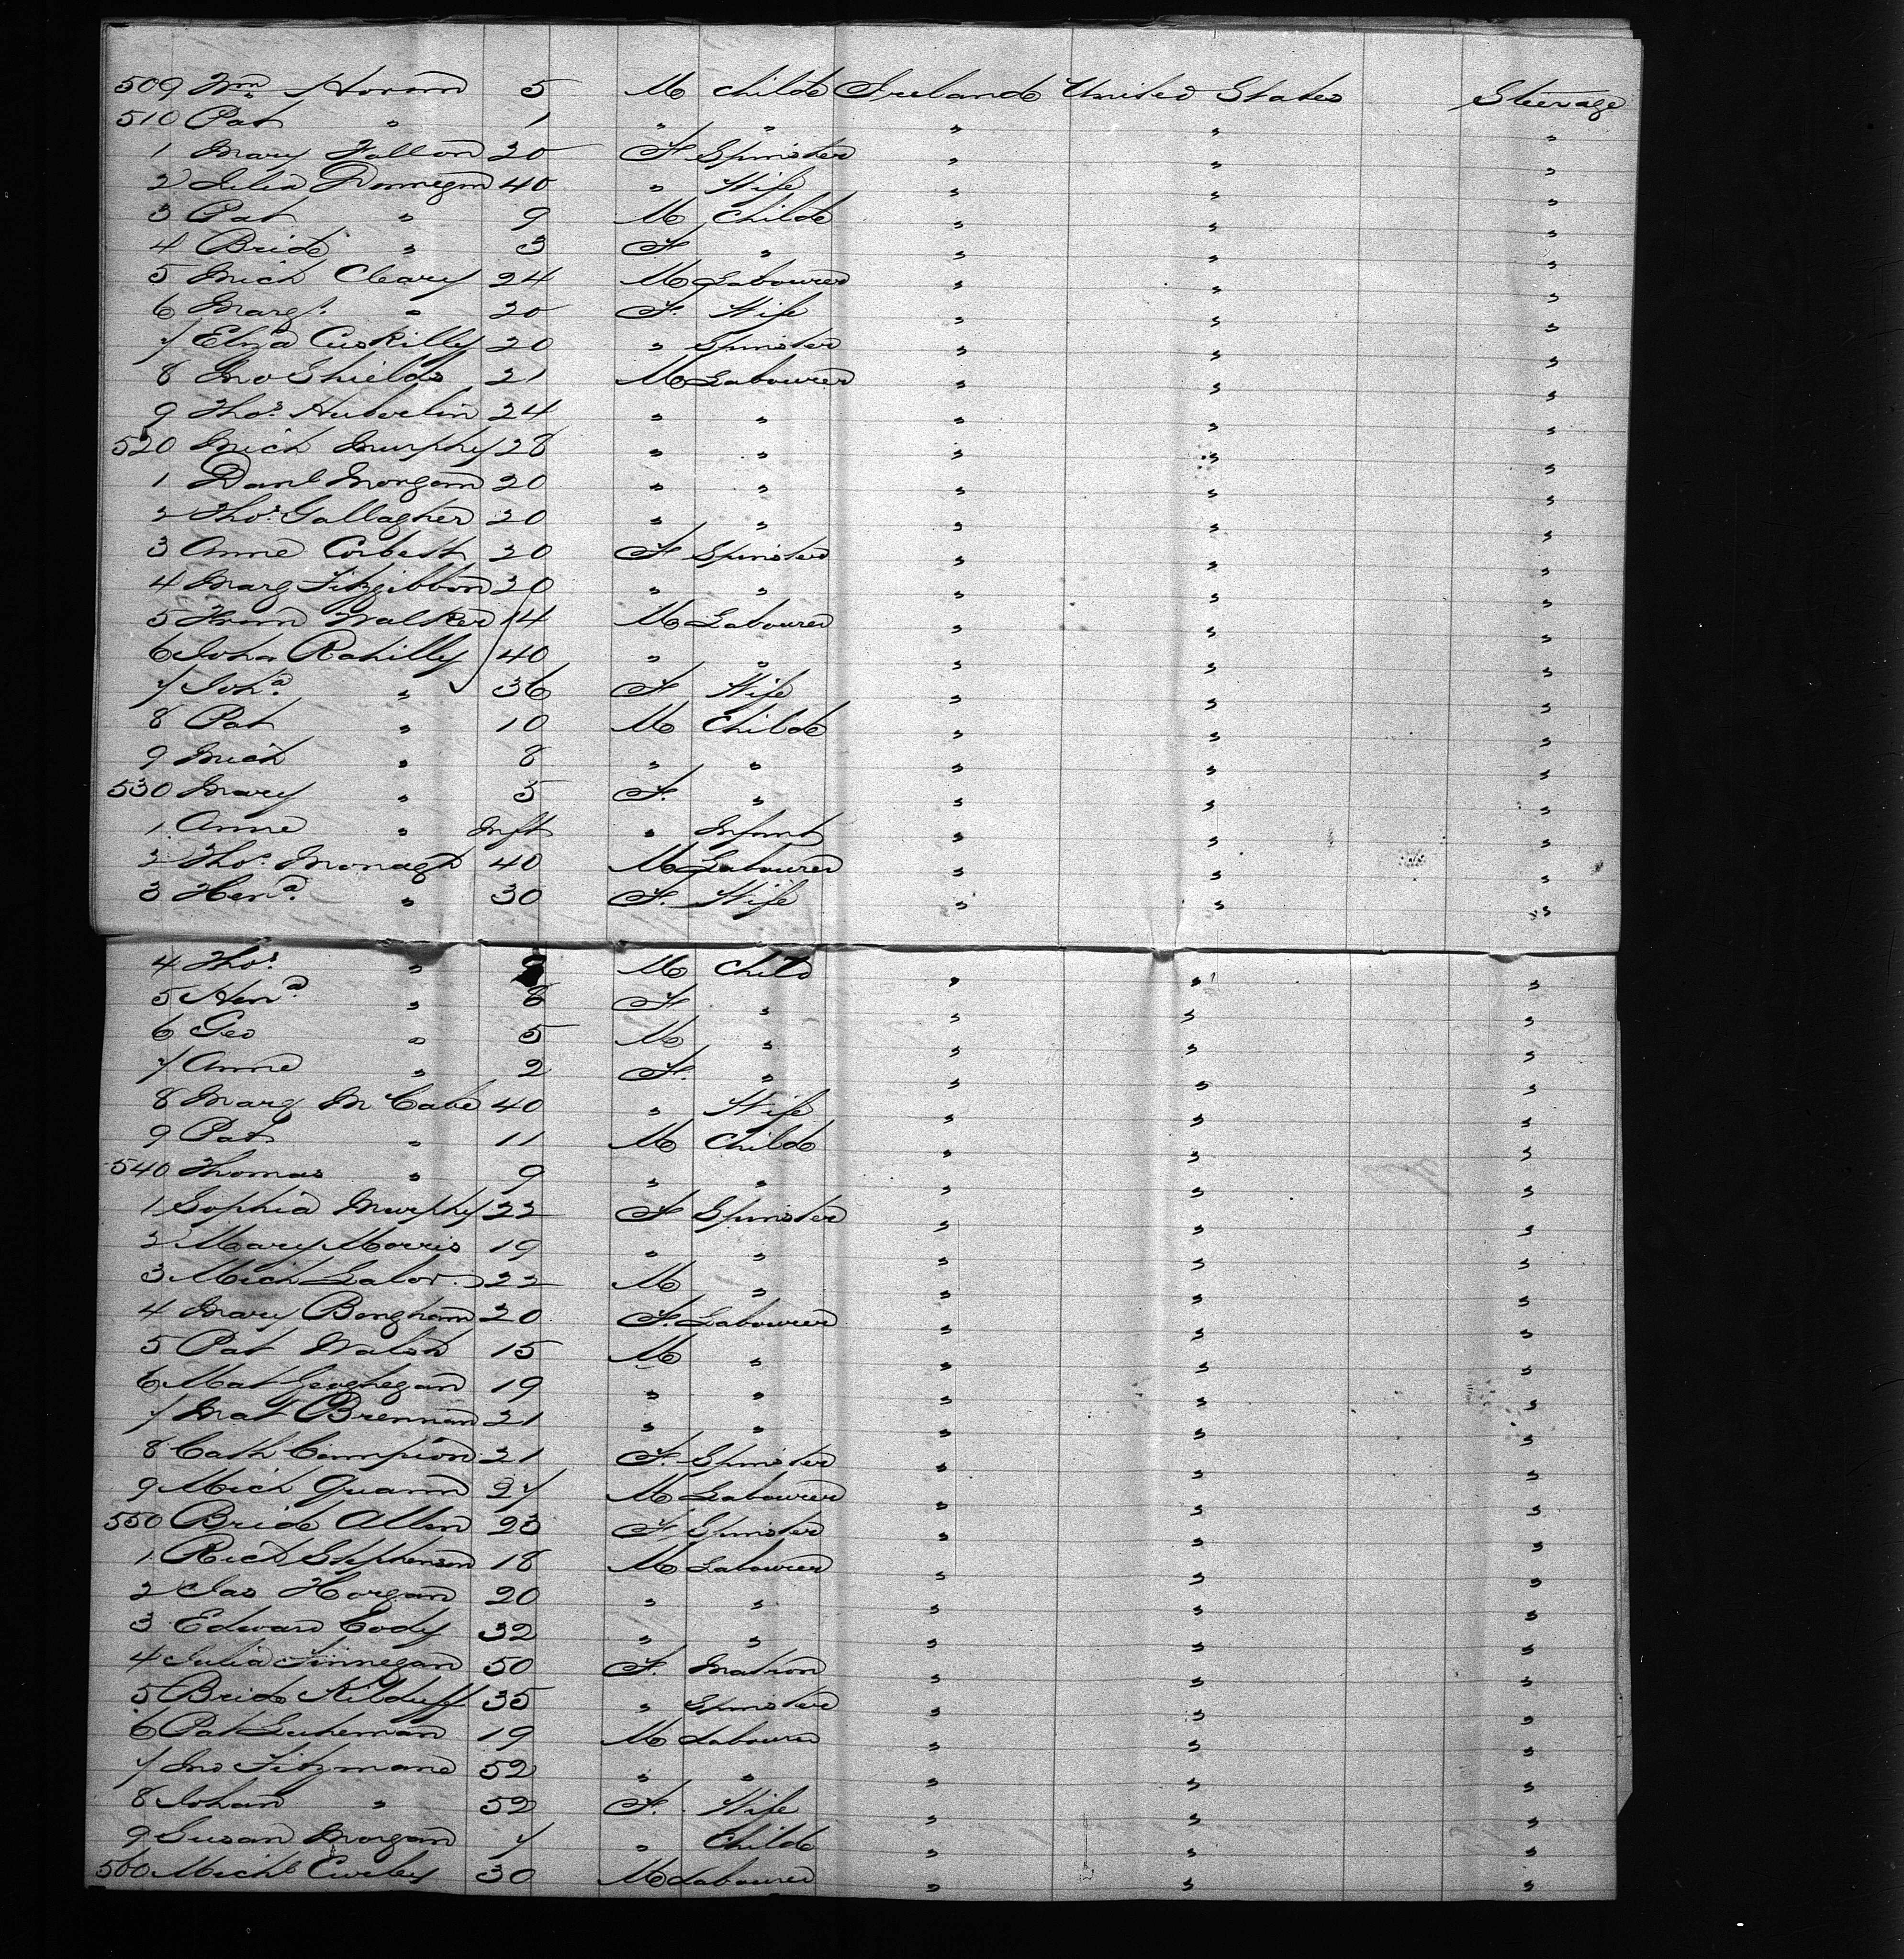 509 Wm Horan 5 M Child Ireland United States Steerage
510 Pat " 1 " " " " "
1 Mary Fallon 20 F Spinster " " "
2 Delia Donnegan 40 " Wife " " "
3 Pat " 9 M Child " " "
4 Brid " 3 F " " " "
5 Mich Cleary 24 M Labourer " " "
6 Margt " 20 F. Wife " " "
7 Eliza Cuskilly 20 " Spinster " " "
8 Jno Shields 21 M Labourer " " "
9 Thos 24 " " " " "
520 Mich Murphy 28 " " " " "
1 Danl Morgan 20 " " " " "
2 Thos Gallagher 20 " " " " "
3 Anne Corbett 20 F Spinster " " "
4 Marg Fitzgibbon 20 " " " " "
5 Walker 14 M Labourer " " "
6 John Rahilly 40 " " " " "
7 Joha " 36 F Wife " " "
8 Pat " 10 M Child " " "
9 Mich " 8 " " " " "
530 Mary " 5 F. " " " "
1 Anne " Inft " Infant " " "
2 Thos Monagh 40 M Labourer " " "
3 Hena " 30 F. Wife " " "
4 Thos " 9 M Child " " "
5 Hena " 8 F " " " "
6 Geo " 5 M " " " "
7 Anne " 2 F. " " " "
8 Marg McCabe 40 " Wife " " "
9 Pat " 11 M Child " " "
540 Thomas " 9 " " " " "
1 Sophia Murphy 22 F Spinster " " "
2 Mary Morris 19 " " " " "
3 Mich Lalor 22 M " " " "
4 Mary Bongham 20 F. Labourer " " "
5 Pat Walsh 15 M " " " "
6 Mat Geoghegan 19 " " " " "
7 Mat Brennan 21 " " " " "
8 Cath Campion 21 F. Spinster " " "
9 Mich Quann 27 M Labourer " " "
550 Brid Allen 23 F Spinster " " "
1 Richd Stephenson 18 M Labourer " " "
2 Jas Horgan 20 " " " " "
3 Edward Cody 32 " " " " "
4 Julia Finnegan 50 F. Matron " " "
5 Brid Kilduff 35 " Spinster " " "
6 Pat 19 M Labourer " " "
7 Jno Fitzmane 52 " " " " "
8 Johan " 52 F. Wife " " "
9 Susan Morgan 7 " Child " " "
560 Michl Curley 30 M Labourer " " "